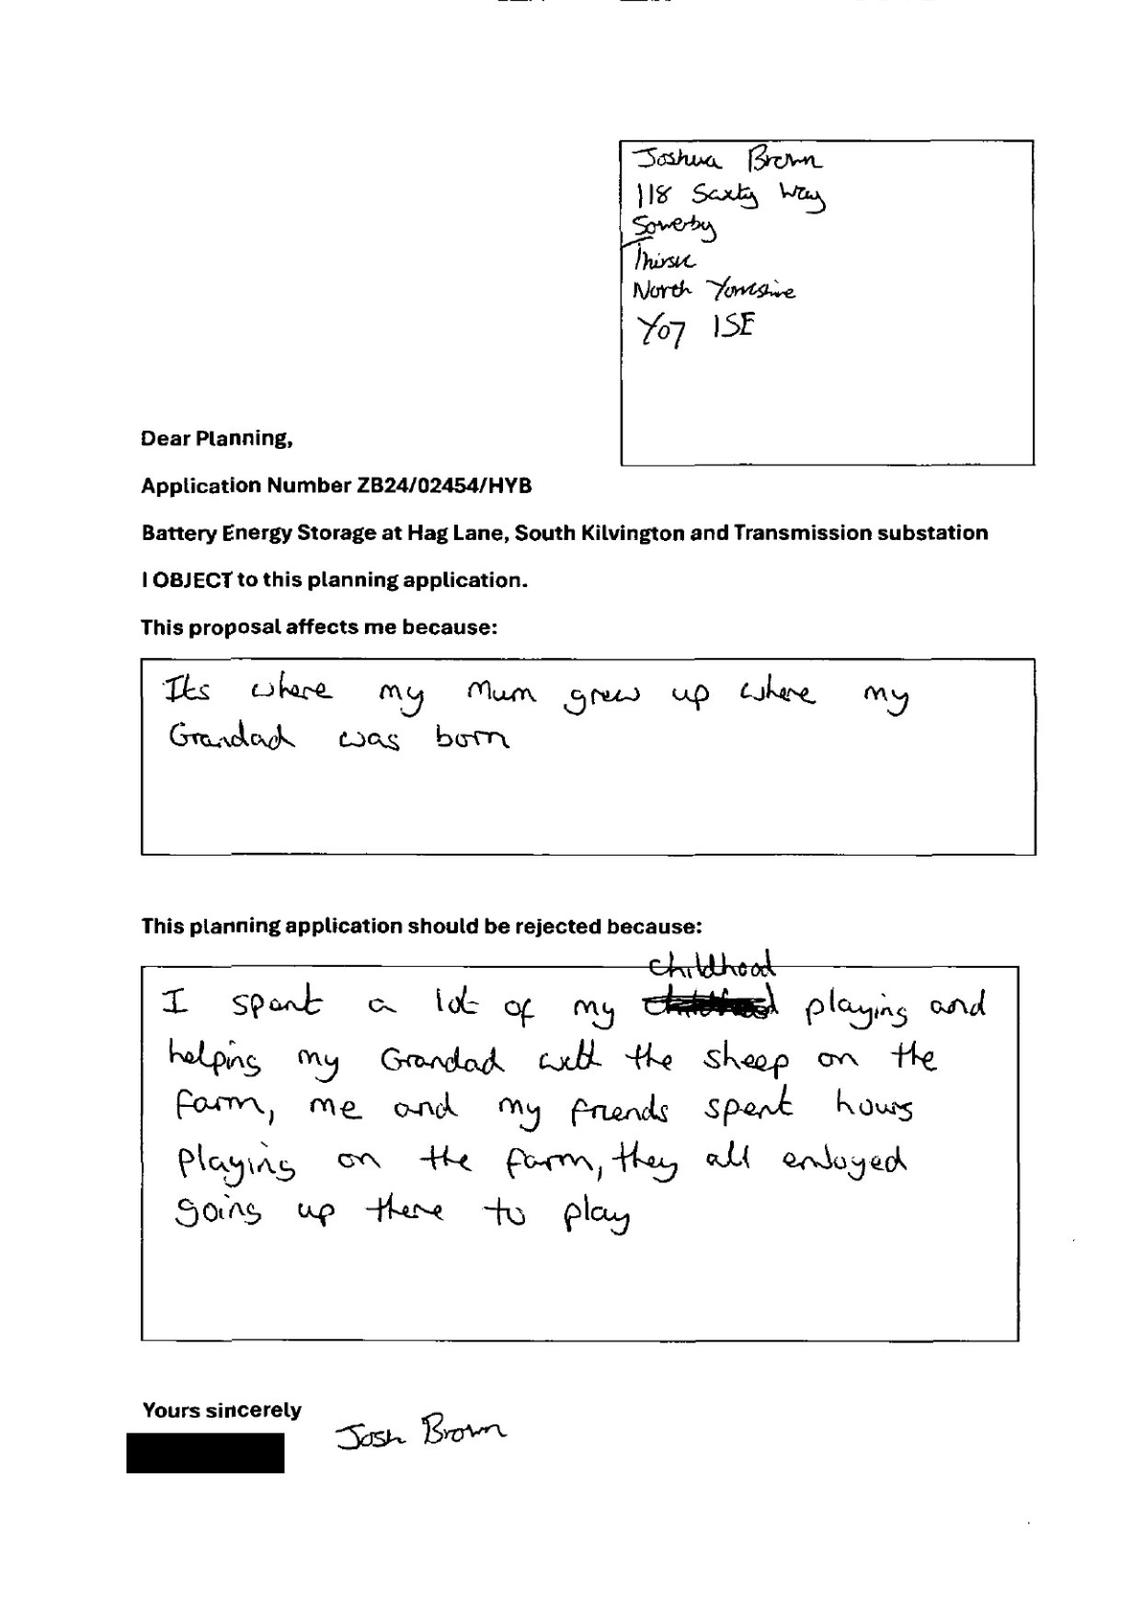 Joshua Brown
118 Saxty Way
Sowerby
Thirsk
North Yorkshire
YO7 1SE
Dear Planning,
Application Number ZB24/02454/HYB
Battery Energy Storage at Hag Lane, South Kilvington and Transmission substation
I OBJECT to this planning application.
This proposal affects me because:
Its where my Mum grew up where my
Grandad was born
This planning application should be rejected because:
childhood
I spent a lot of my playing and
helping my Grandad with the sheep on the
farm, me and my friends spent hours
playing on the farm, they all enjoyed
going up there to play
Yours sincerely
Josh Brown